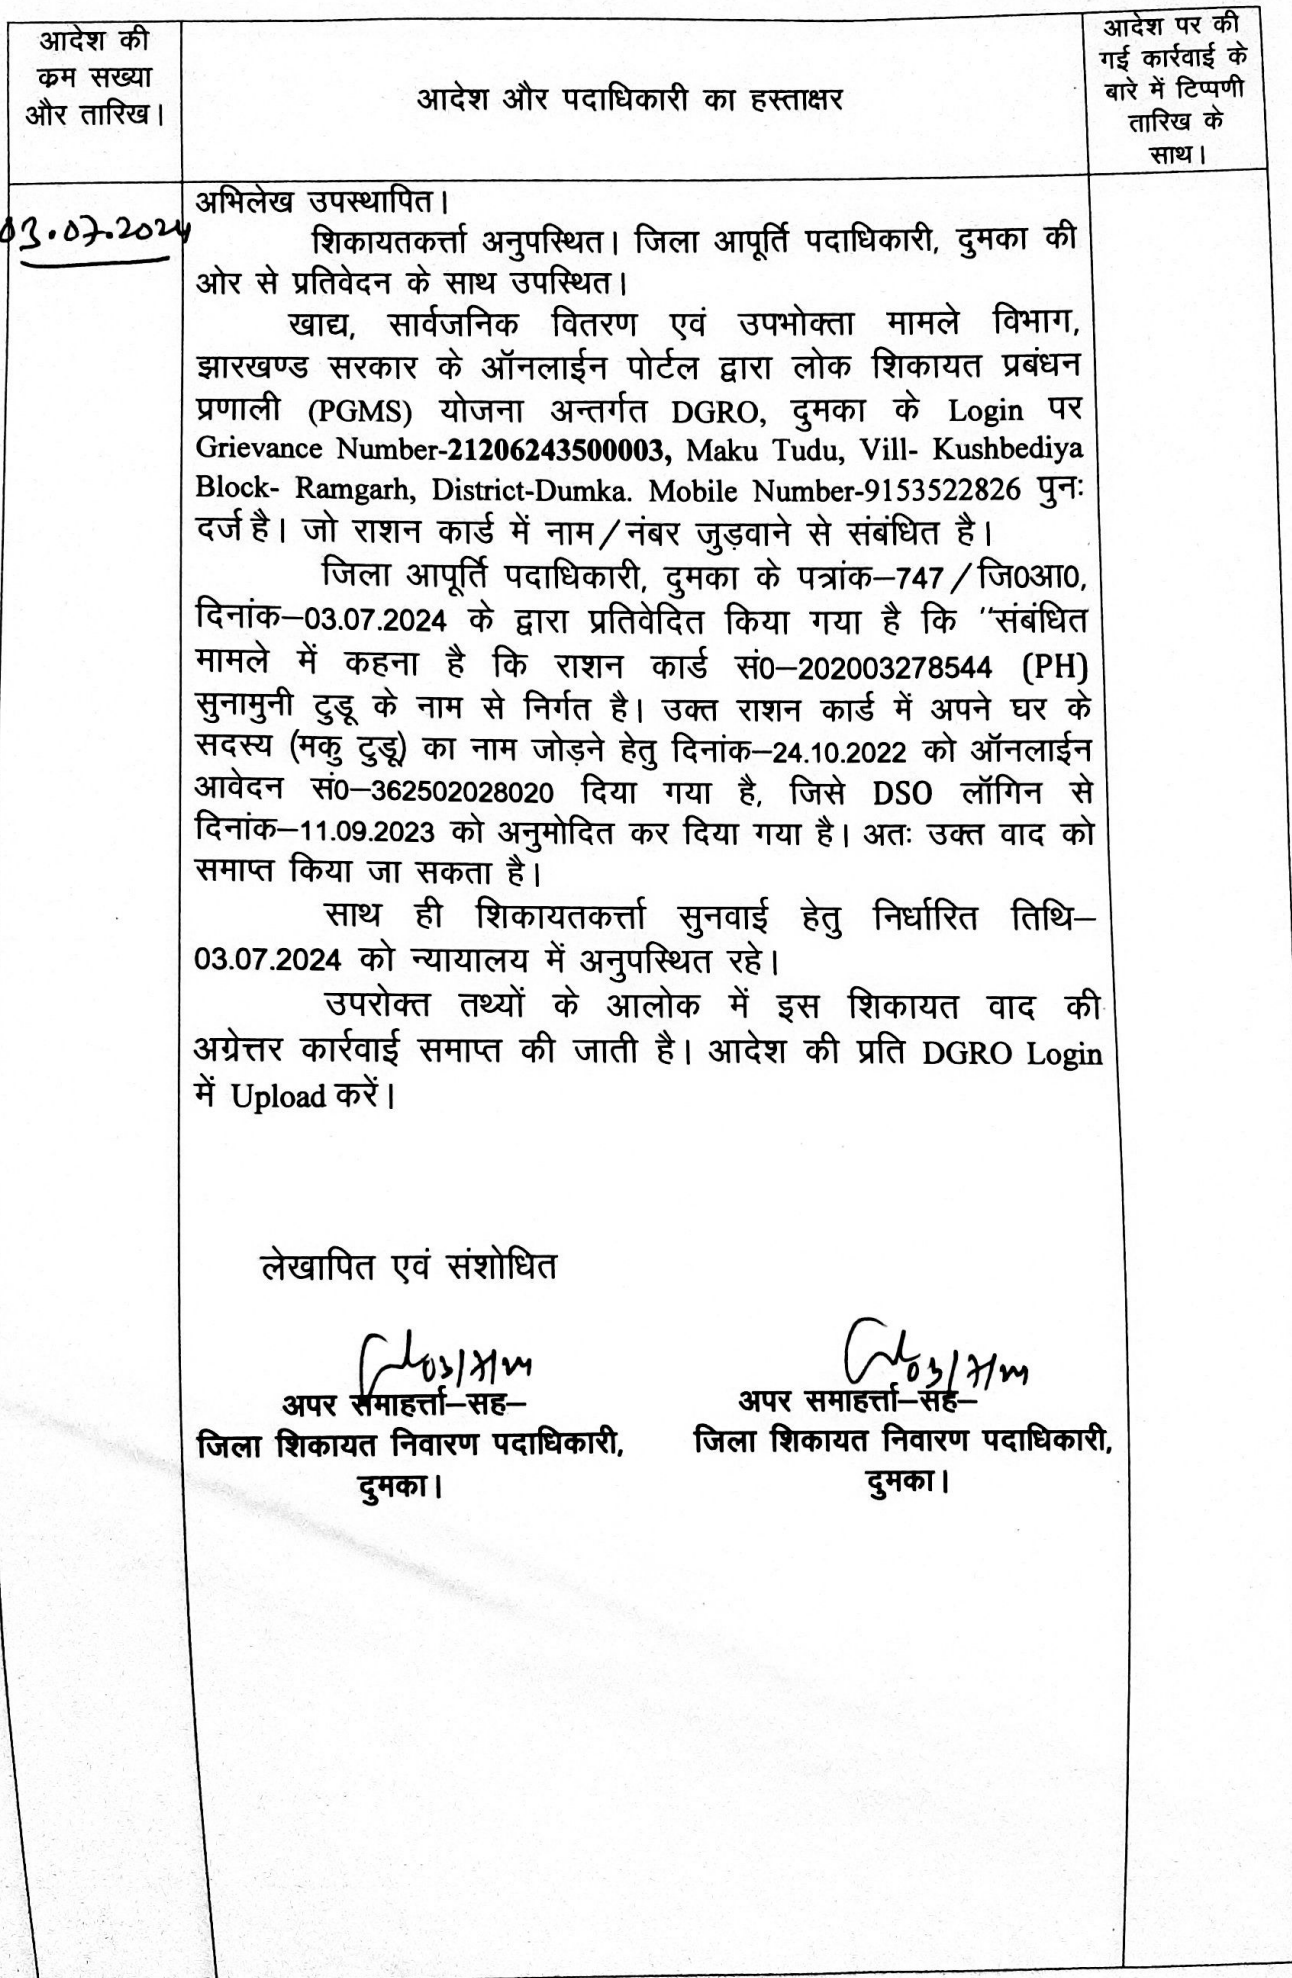 आदेश की
कम सख्या
और तारिख।
आदेश और पदाधिकारी का हस्ताक्षर
आदेश पर की
गई कार्रवाई के
बारे में टिप्पणी
तारिख के
साथ।
03.07.2024
अभिलेख उपस्थापित।
शिकायतकर्त्ता अनुपस्थित। जिला आपूर्ति पदाधिकारी, दुमका की
ओर से प्रतिवेदन के साथ उपस्थित।
खाद्य, सार्वजनिक वितरण एवं उपभोक्ता मामले विभाग,
झारखण्ड सरकार के ऑनलाईन पोर्टल द्वारा लोक शिकायत प्रबंधन
प्रणाली (PGMS) योजना अन्तर्गत DGRO, दुमका के Login पर
Grievance Number-21206243500003, Maku Tudu, Vill- Kushbediya
Block- Ramgarh, District-Dumka. Mobile Number-9153522826 पुनः
दर्ज है। जो राशन कार्ड में नाम/नंबर जुड़वाने से संबंधित है।
जिला आपूर्ति पदाधिकारी, दुमका के पत्रांक–747/जि0आ0,
दिनांक–03.07.2024 के द्वारा प्रतिवेदित किया गया है कि "संबंधित
मामले में कहना है कि राशन कार्ड सं0–202003278544 (PH)
सुनामुनी टुडू के नाम से निर्गत है। उक्त राशन कार्ड में अपने घर के
सदस्य (मकु टुडू) का नाम जोड़ने हेतु दिनांक–24.10.2022 को ऑनलाईन
आवेदन सं0–362502028020 दिया गया है, जिसे DSO लॉगिन से
दिनांक–11.09.2023 को अनुमोदित कर दिया गया है। अतः उक्त वाद को
समाप्त किया जा सकता है।
साथ ही शिकायतकर्त्ता सुनवाई हेतु निर्धारित तिथि–
03.07.2024 को न्यायालय में अनुपस्थित रहे।
उपरोक्त तथ्यों के आलोक में इस शिकायत वाद की
अग्रेत्तर कार्रवाई समाप्त की जाती है। आदेश की प्रति DGRO Login
में Upload करें।
लेखापित एवं संशोधित
अपर समाहर्त्ता–सह–
जिला शिकायत निवारण पदाधिकारी,
दुमका।
अपर समाहर्त्ता–सह–
जिला शिकायत निवारण पदाधिकारी,
दुमका।